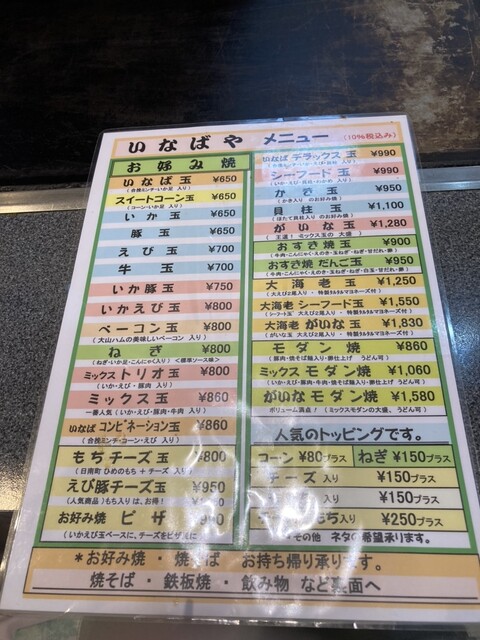 いなばや メニュー (10%税込み)
お好み焼
いなば玉 ¥650
(合挽ミンチ・いか足 入り)
スイートコーン玉 ¥650
(コーン・いか足 入り)
いか玉 ¥650
豚玉 ¥650
えび玉 ¥700
牛玉 ¥700
いか豚玉 ¥750
いかえび ¥800
ベーコン玉 ¥800
(大山ハムの美味しいベーコン 入り)
ねぎ ¥800
(ねぎ・いか足・こんにゃく入り) <標準ソース味>
ミックストリオ玉 ¥800
(いか・えび・豚肉 入り)
ミックス玉 ¥860
一番人気 (いか・えび・豚肉・牛肉 入り)
いなば コンビネーション玉 ¥860
(合挽ミンチ・コーン・えび 入り)
もちチーズ玉 ¥800
(日南町 ひめのもち + チーズ 入り)
えび豚チーズ玉 ¥950
(人気商品) もち入りは、お得!
お好み焼 ピザ
(いかえび玉ベースに、チーズをピザ風に
いなば デラックス玉 ¥990
シーフード玉 ¥990
かき玉 ¥950
(かき入り のお好み焼)
貝柱玉 ¥1,100
(ほたて貝柱入り のお好み焼)
がいな玉 ¥1,280
(王道! ミックス玉の 大盛)
おすき焼玉 ¥900
(牛肉・こんにゃく・えのき・玉ねぎ・ねぎ・甘だれ・卵)
おすき焼 だんご玉 ¥950
(牛肉・こんにゃく・えのき・玉ねぎ・ねぎ・白玉・甘だれ・卵)
大海老玉 ¥1,250
(大えび2尾入り ・ 特製タルタルマヨネーズ付)
大海老 シーフード玉 ¥1,550
(シーフード玉 大えび2尾入り ・ 特製タルタルマヨネーズ付)
大海老 がいな玉 ¥1,830
(がいな玉 大えび2尾入り ・ 特製タルタルマヨネーズ付)
モダン焼 ¥860
(豚肉・焼そば麺入り・卵仕上げ うどん可)
ミックスモダン焼 ¥1,060
(いか・えび・豚肉・牛肉・焼そば麺入り・卵仕上げ うどん可)
がいなモダン焼 ¥1,580
ボリューム満点! (ミックスモダンの大盛、うどん可)
人気のトッピングです。
コーン ¥80プラス ねぎ ¥150プラス
チーズ 入り ¥150プラス
入り ¥150プラス
入り ¥250プラス
*その他 ネタの希望承ります。
*お好み焼・焼そば お持ち帰り承ります。
焼そば・鉄板焼・飲み物 など裏面へ